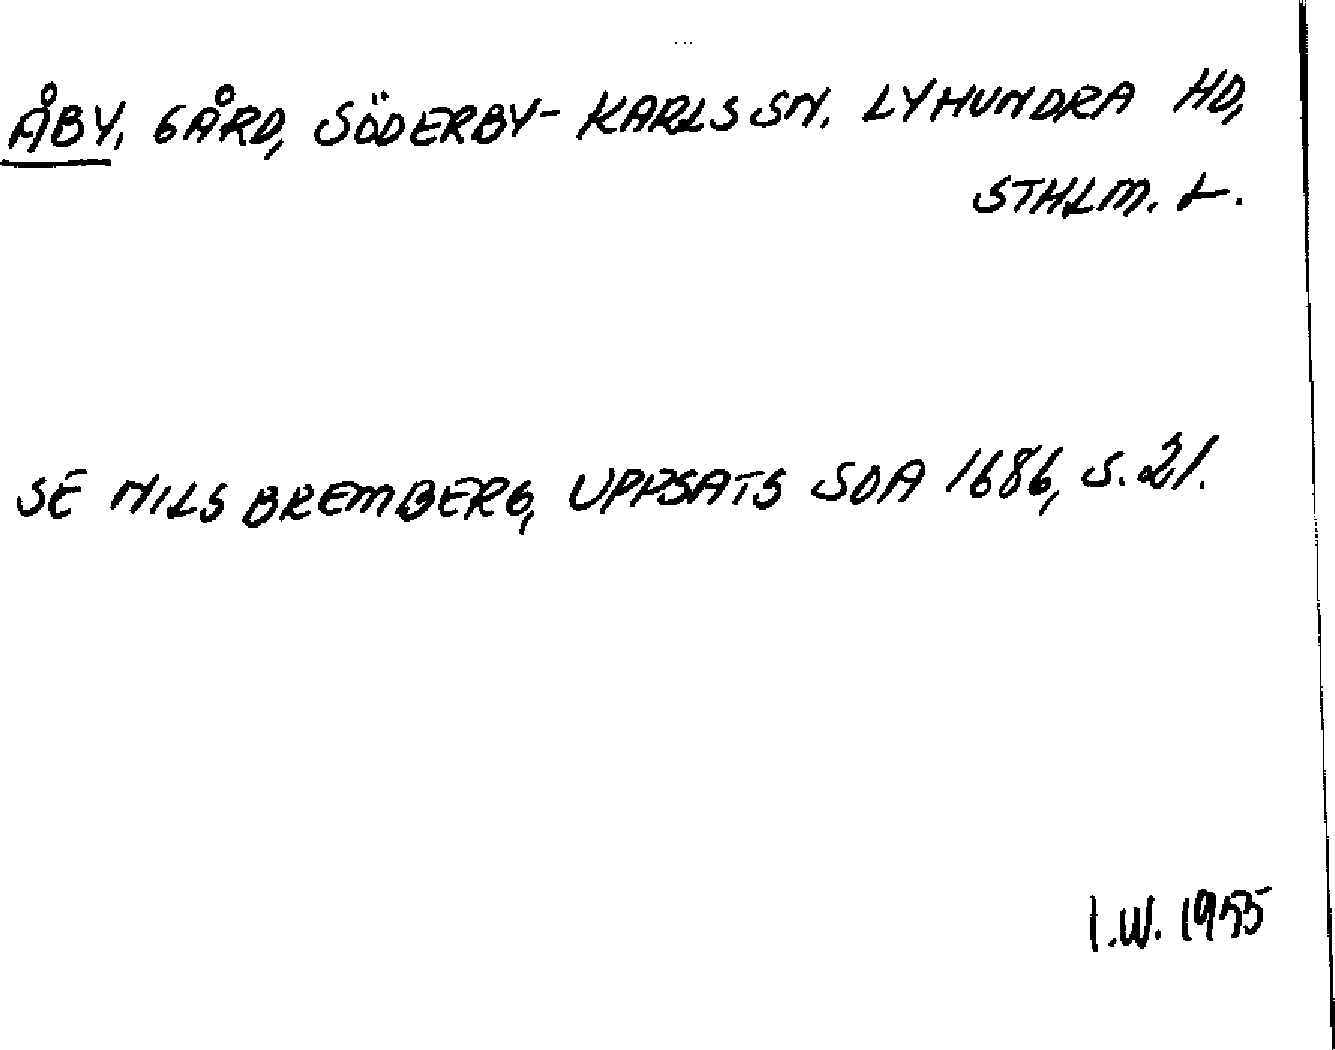 ÅBY, GÅRD, SÖDERBY-KARLS SN. LYHUNDRA HD,
STHLM. L.
SE NILS BREMBERG, UPPSATS SOA 1686, S. 21.
I.W. 1955